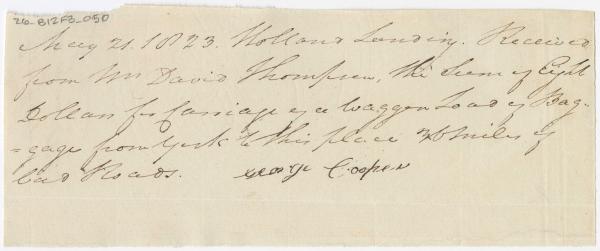 26-B12F3-050
May 21. 1823. Holland Landing. Received
from Mr David Thompson, the Sum of Eight
Dollars for Carriage of a Waggon Load of Bag-
=gage from York to this place 36 miles of
bad Roads. George Cooper